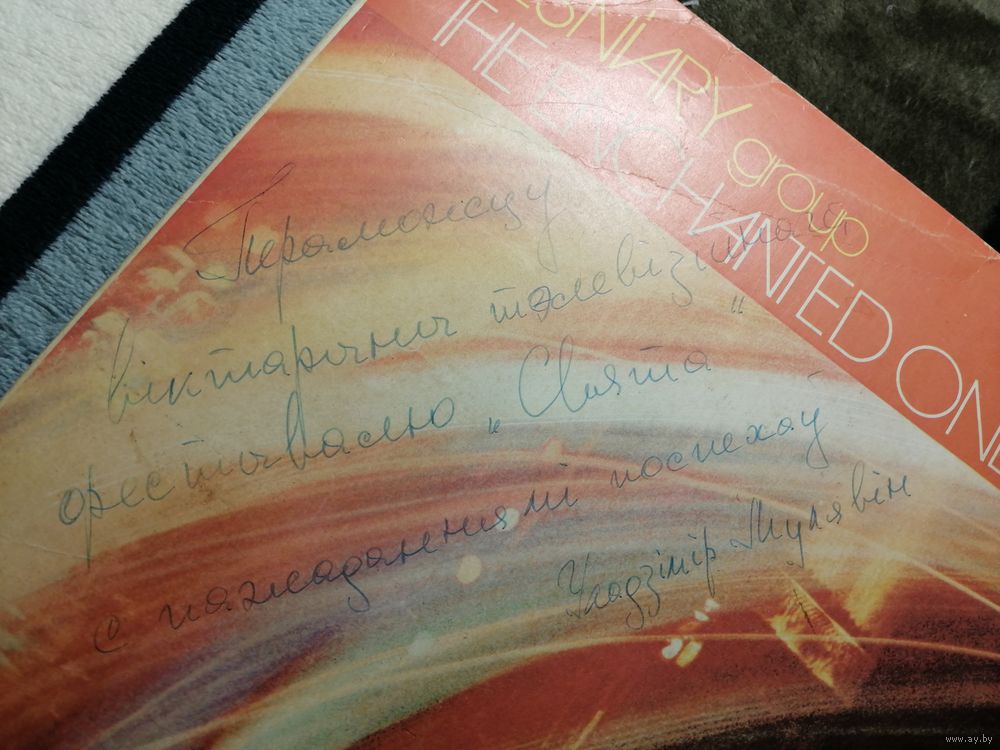 ESNIARY group
THE ENCHANTED ONE
Пераможцу
віктарыны тэлевізійнага
фестывалю „Свята“
с пажаданнямі поспехаў
Уладзімір Мулявін
www.ay.by